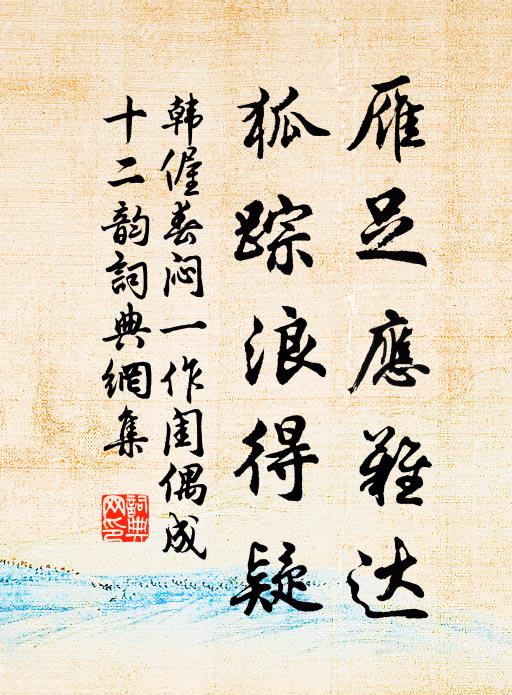 雁足應難达
狐踪浪得疑
韩偓春闷一作闺偶成
十二韵詞典網集
詞典網印